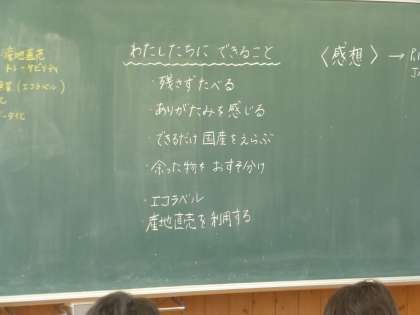 産地直売
トレーサビリティ
(エコラベル)
わたしたちに できること
・残さずたべる
・ありがたみを感じる
・できるだけ国産をえらぶ
・余った物を おすそ分け
・エコラベル
・産地直売を利用する
〈感想〉→